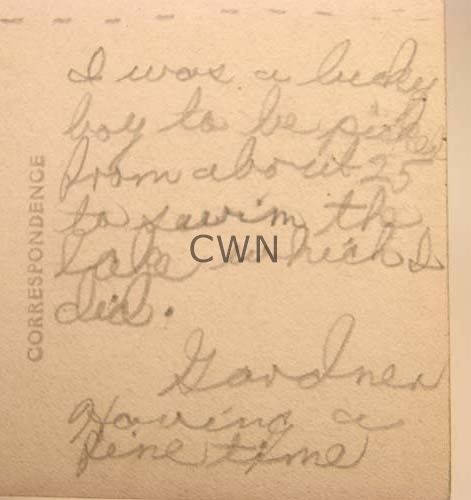 I was a lucky
boy to be picked
from about 25
to swim the
lake which I
did.
Gardner
Having a
fine time
CORRESPONDENCE
CWN